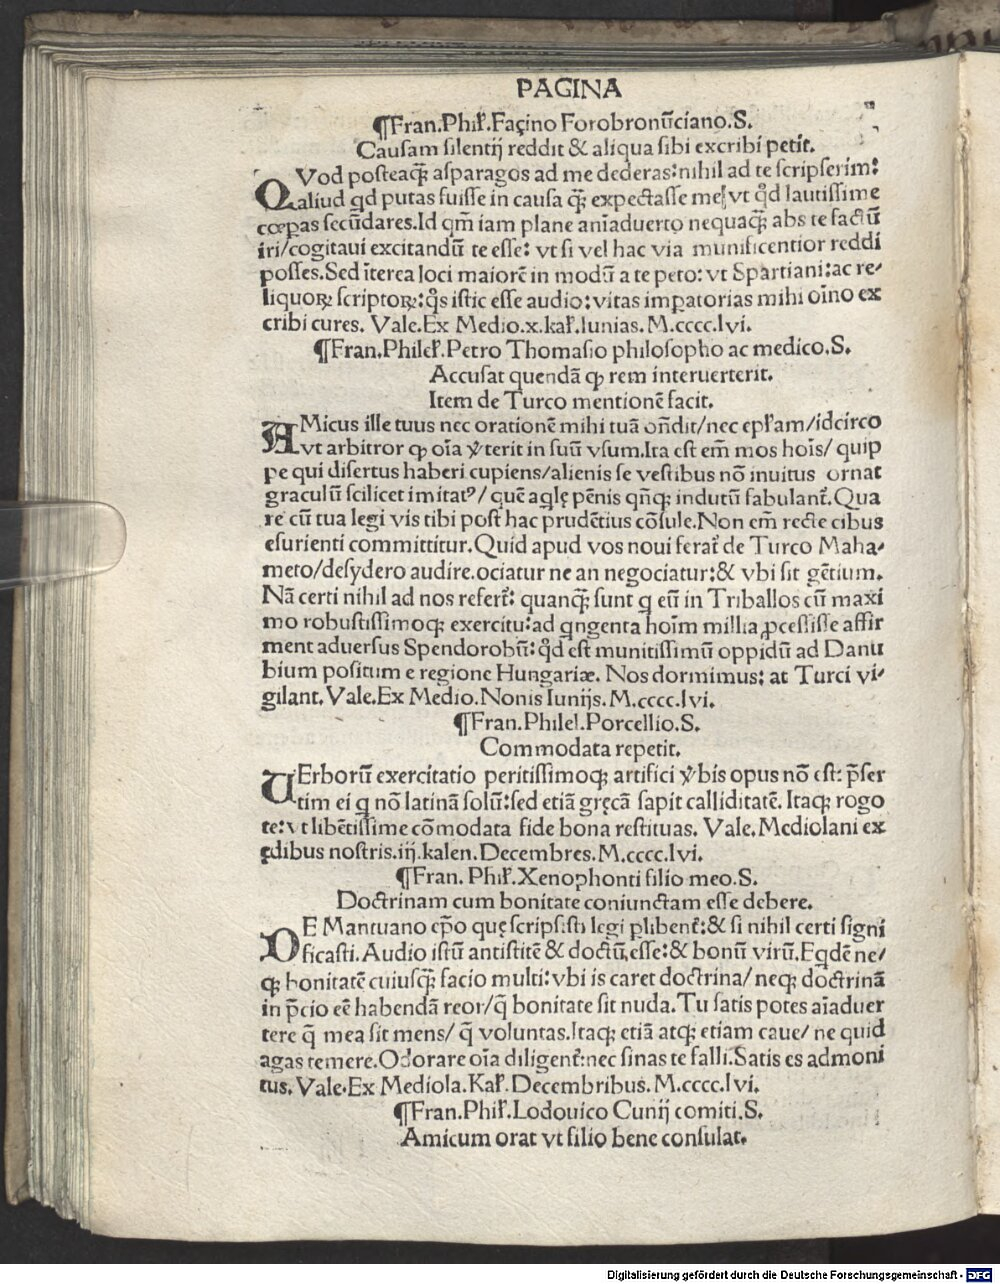 PAGINA
¶Fran.Phil̃.Façino Forobronũciano.S.
Causam silentij reddit & aliqua sibi excribi petit.
QVod posteaq̃ asparagos ad me dederas:nihil ad te scripserim:
aliud qd putas fuisse in causa q̃ expectasse me/vt q̊d lautissime
cœpas secũdares.Id qm̃ iam plane aniaduerto nequaq̃ abs te factũ
iri/cogitaui excitandũ te esse: vt si vel hac via munificentior reddi
posses.Sed ĩterea loci maiorẽ in modũ a te peto: vt Spartiani:ac re/
liquoꝝ scriptoꝝ:q̊s istic esse audio:vitas imꝑatorias mihi oĩno ex
cribi cures. Vale.Ex Medio.x.kal̃.Iunias. M.cccc.lvi.
¶Fran.Philel̃.Petro Thomasio philosopho ac medico.S.
Accusat quendã ꝙ rem interuerterit.
Item de Turco mentionẽ facit.
AMicus ille tuus nec orationẽ mihi tuã oñdit/nec epl̃am/idcirco
vt arbitror ꝙ oĩa v̓terit in suũ vsum.Ita est em̃ mos hoĩs/ quip
pe qui disertus haberi cupiens/alienis se vestibus nõ inuitus ornat
graculũ scilicet imitatꝰ/ quẽ aqlę pẽnis qñq; indutũ fabulant̃.Qua
re cũ tua legi vis tibi post hac prudẽtius cõsule.Non em̃ recte cibus
esurienti committitur.Quid apud vos noui ferat̃ de Turco Maha/
meto/desydero audire.ociatur ne an negociatur:& vbi sit gẽtium.
Nã certi nihil ad nos refert̃: quanq̃ sunt q eũ in Triballos cũ maxi
mo robustissimoq; exercitu:ad qngenta hoĩm millia ꝓcessisse affir
ment aduersus Spendorobũ: q̊d est munitissimũ oppidũ ad Danu
bium positum e regione Hungariæ. Nos dormimus: at Turci vi/
gilant. Vale.Ex Medio.Nonis Iunijs. M.cccc.lvi.
¶Fran.Philel.Porcellio.S.
Commodata repetit.
VErborũ exercitatio peritissimoq; artifici v̓bis opus nõ est: p̃ser
tim ei q nõ latinã solũ:sed etiã gręcã sapit calliditatẽ. Itaq; rogo
te:vt libẽtissime cõmodata fide bona restituas. Vale. Mediolani ex
ędibus nostris.iij.kalen.Decembres.M.cccc.lvi.
¶Fran. Phil̃.Xenophonti filio meo.S.
Doctrinam cum bonitate coniunctam esse debere.
DE Mantuano ep̃o quę scripsisti legi ꝑlibent̃:& si nihil certi signi
ficasti.Audio istũ antistitẽ & doctũ esse:& bonũ virũ.Eqdẽ ne/
q; bonitatẽ cuiusq̃ facio multi:vbi is caret doctrina/ neq; doctrinã
in p̃cio eẽ habendã reor/q̃ bonitate sit nuda.Tu satis potes aĩaduer
tere q̃ mea sit mens/ q̃ voluntas.Itaq; etiã atq; etiam caue/ ne quid
agas temere.Odorare oĩa diligent̃:nec sinas te falli.Satis es admoni
tus. Vale.Ex Mediola.Kal̃.Decembribus. M.cccc.lvi.
¶Fran.Phil̃.Lodouico Cunij comiti.S.
Amicum orat vt filio bene consulat.
Digitalisierung gefördert durch die Deutsche Forschungsgemeinschaft - DFG